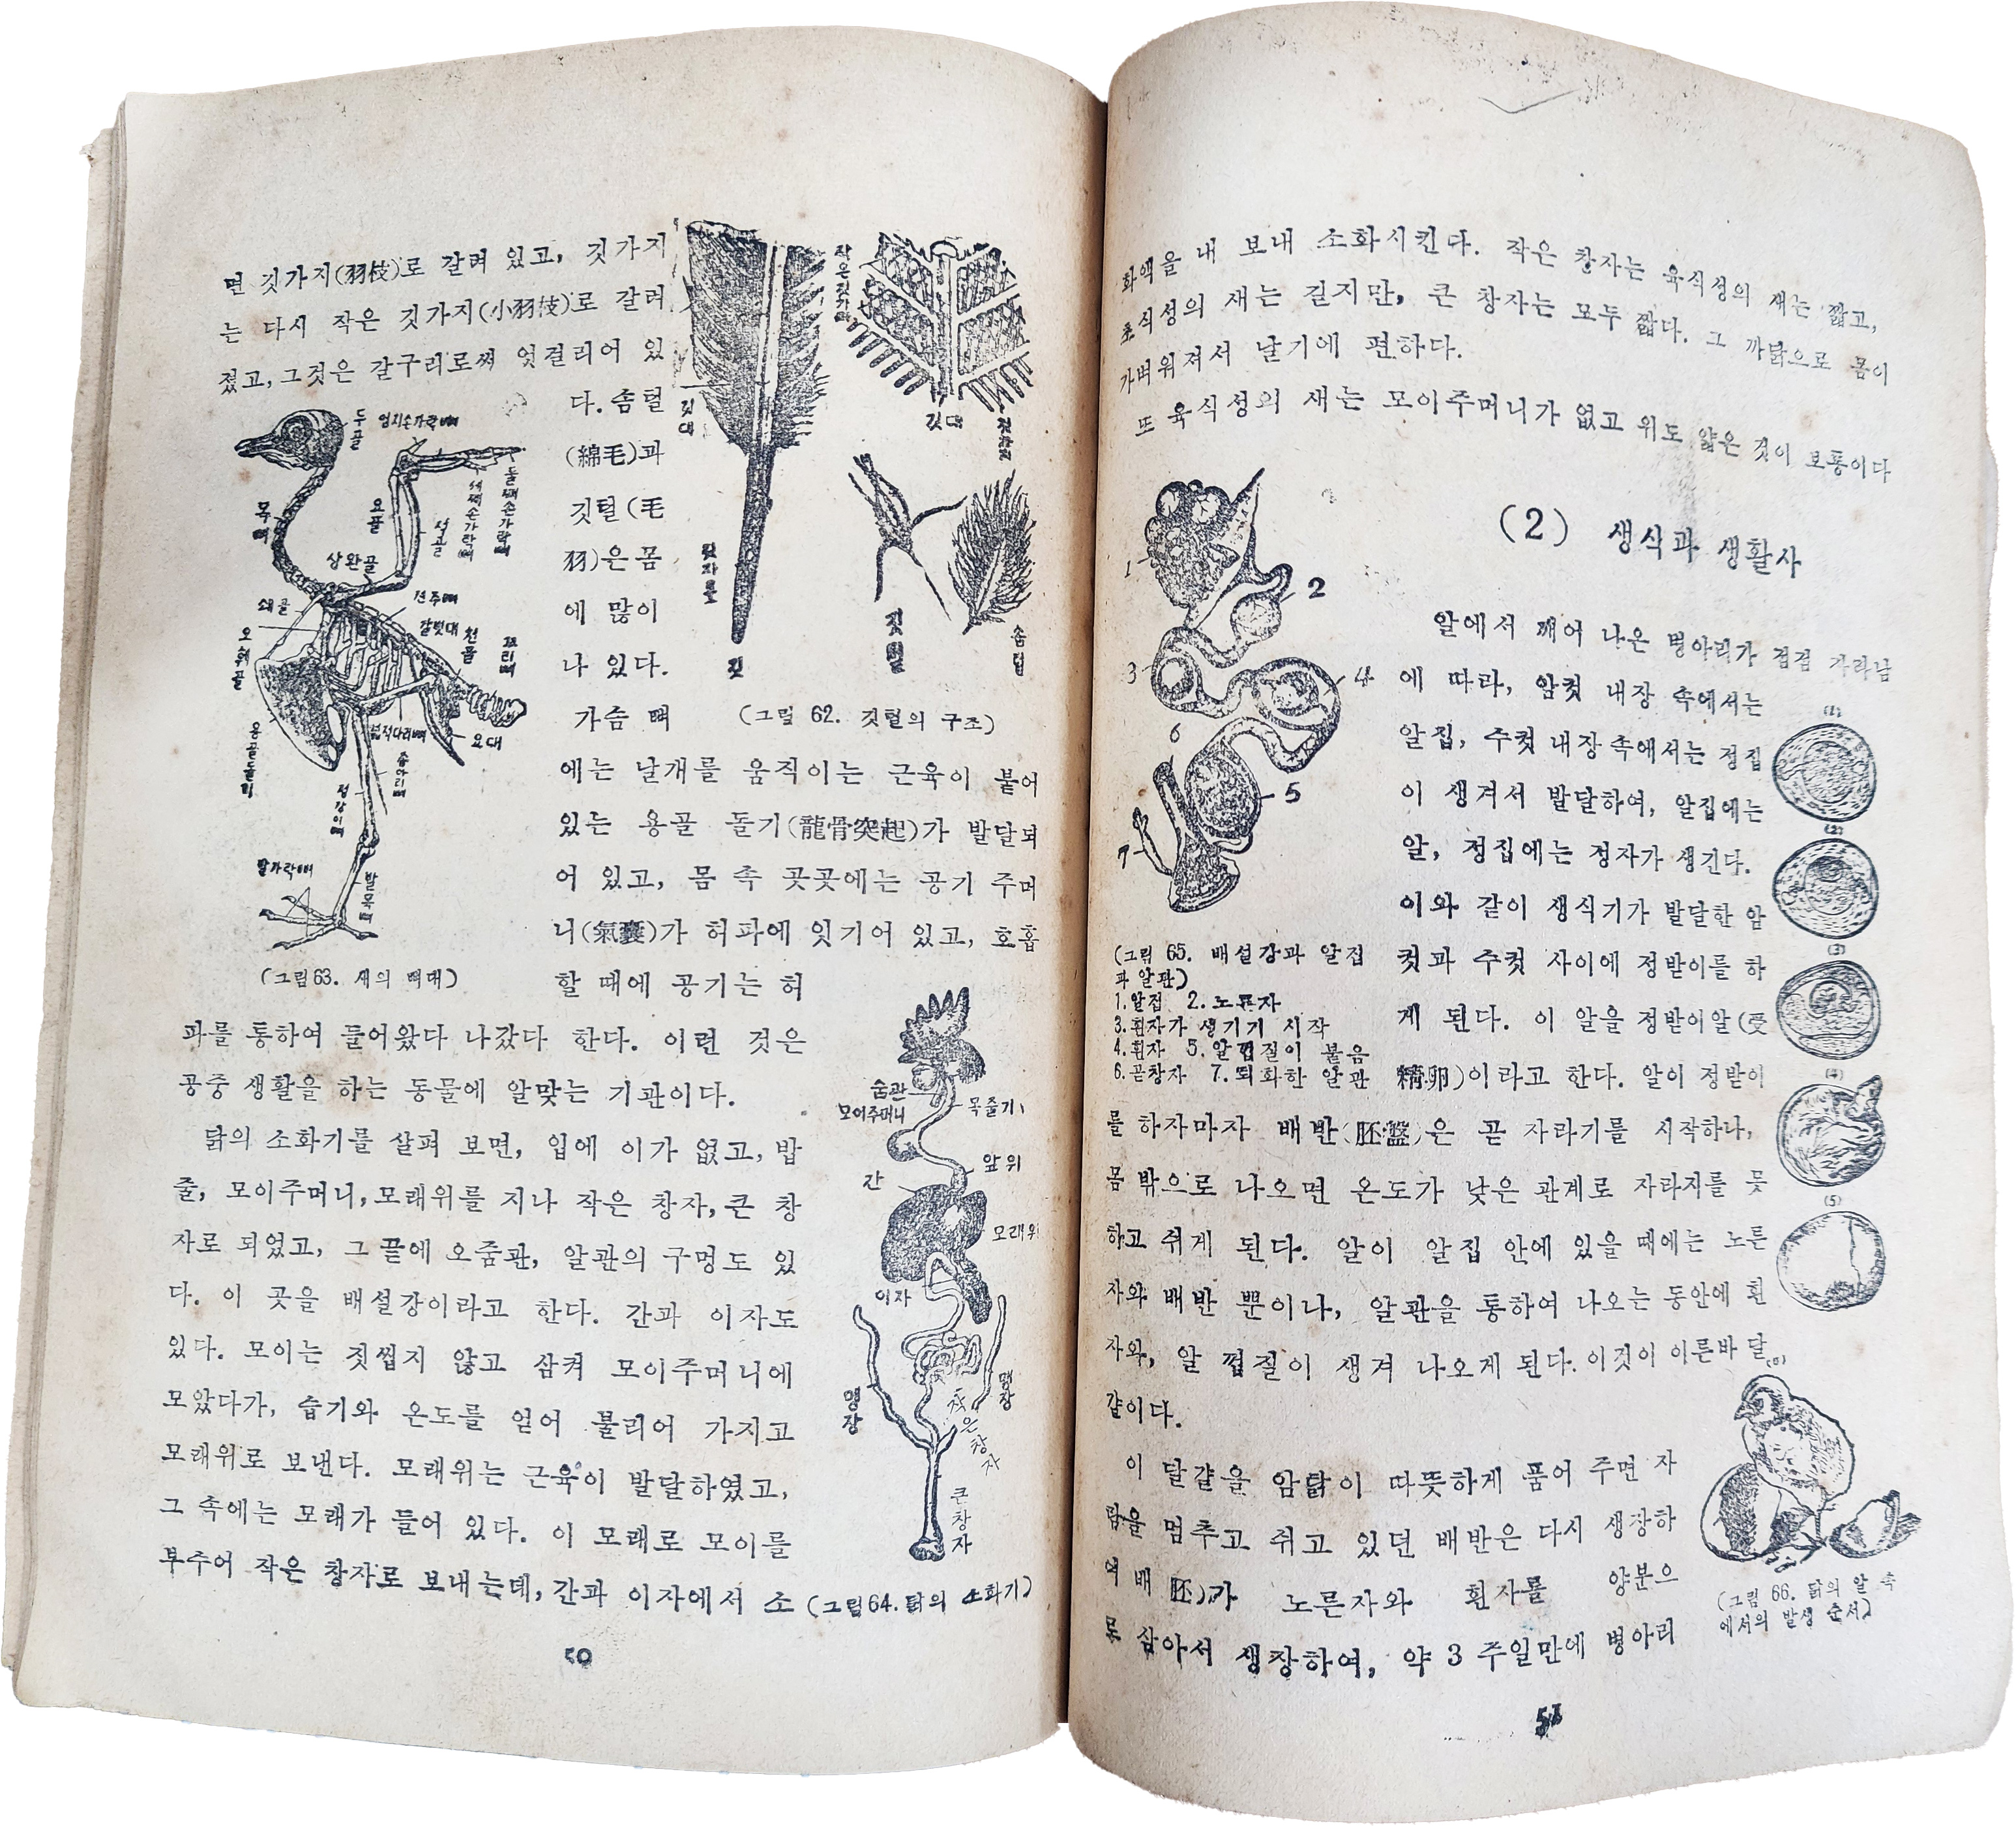 면 깃가지(羽枝)로 갈려 있고, 깃가지
는 다시 작은 깃가지(小羽枝)로 갈려
졌고, 그것은 갈구리로써 엇걸리어 있
다. 솜털
(綿毛)과
깃털(毛
羽)은 몸
에 많이
나 있다.
가슴 뼈
에는 날개를 움직이는 근육이 붙어
있는 용골 돌기(龍骨突起)가 발달되
어 있고, 몸 속 곳곳에는 공기 주머
니(氣囊)가 허파에 잇기어 있고, 호흡
할 때에 공기는 허
파를 통하여 들어왔다 나갔다 한다. 이런 것은
공중 생활을 하는 동물에 알맞는 기관이다.
닭의 소화기를 살펴 보면, 입에 이가 없고, 밥
줄, 모이주머니, 모래위를 지나 작은 창자, 큰 창
자로 되었고, 그 끝에 오줌관, 알관의 구멍도 있
다. 이 곳을 배설강이라고 한다. 간과 이자도
있다. 모이는 짓씹지 않고 삼켜 모이주머니에
모았다가, 습기와 온도를 얻어 불리어 가지고
모래위로 보낸다. 모래위는 근육이 발달하였고,
그 속에는 모래가 들어 있다. 이 모래로 모이를
부수어 작은 창자로 보내는데, 간과 이자에서 소
작은깃가지
깃대
깃대
깃가지
깃
깃털
솜털
(그림 62. 깃털의 구조)
두골
엄지손가락뼈
둘째손가락뼈
세째손가락뼈
목뼈
요골
척골
상완골
쇄골
견주뼈
갈빗대
오훼골
천골
꼬리뼈
용골돌기
넙적다리뼈
요대
종아리뼈
정강이뼈
발가락뼈
발목뼈
(그림63. 새의 뼈대)
숨관
모이주머니
목줄기
앞위
간
모래위
이자
맹장
맹장
작은창자
큰창자
(그림64. 닭의 소화기)
50
화액을 내 보내 소화시킨다. 작은 창자는 육식성의 새는 짧고,
초식성의 새는 길지만, 큰 창자는 모두 짧다. 그 까닭으로 몸이
가벼워져서 날기에 편하다.
또 육식성의 새는 모이주머니가 없고 위도 얇은 것이 보통이다
(2) 생식과 생활사
알에서 깨어 나온 병아리가 점점 자라남
에 따라, 암컷 내장 속에서는
알집, 수컷 내장 속에서는 정집
이 생겨서 발달하여, 알집에는
알, 정집에는 정자가 생긴다.
이와 같이 생식기가 발달한 암
컷과 수컷 사이에 정받이를 하
게 된다. 이 알을 정받이알(受
精卵)이라고 한다. 알이 정받이
를 하자마자 배반(胚盤)은 곧 자라기를 시작하나,
몸 밖으로 나오면 온도가 낮은 관계로 자라지를 못
하고 쉬게 된다. 알이 알집 안에 있을 때에는 노른
자와 배반 뿐이나, 알관을 통하여 나오는 동안에 흰
자와, 알 껍질이 생겨 나오게 된다. 이것이 이른바 달
걀이다.
이 달걀을 암닭이 따뜻하게 품어 주면 자
람을 멈추고 쉬고 있던 배반은 다시 생장하
여 배(胚)가 노른자와 흰자를 양분으
로 삼아서 생장하여, 약 3 주일만에 병아리
1
2
3
4
5
6
7
(그림 65. 배설강과 알집
과 알관)
1. 알집 2. 노른자
3. 흰자가 생기기 시작
4. 흰자 5. 알껍질이 붙음
6. 곧창자 7. 퇴화한 알관
(1)
(2)
(3)
(4)
(5)
(6)
(그림 66. 닭의 알 속
에서의 발생 순서)
51